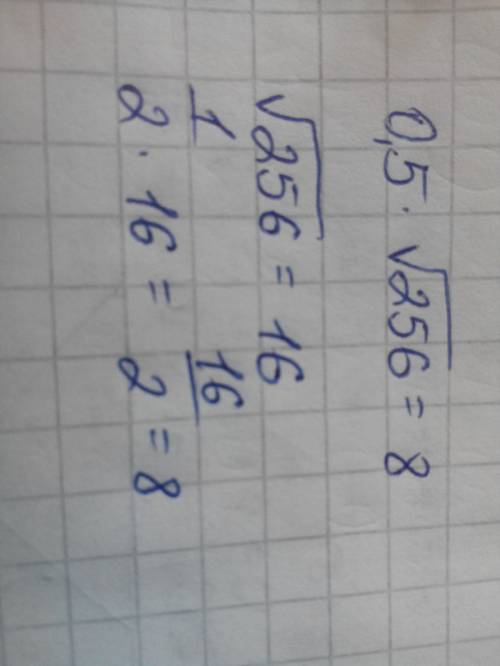 0,5 · √256 = 8
√256 = 16
1/2 · 16 = 16/2 = 8